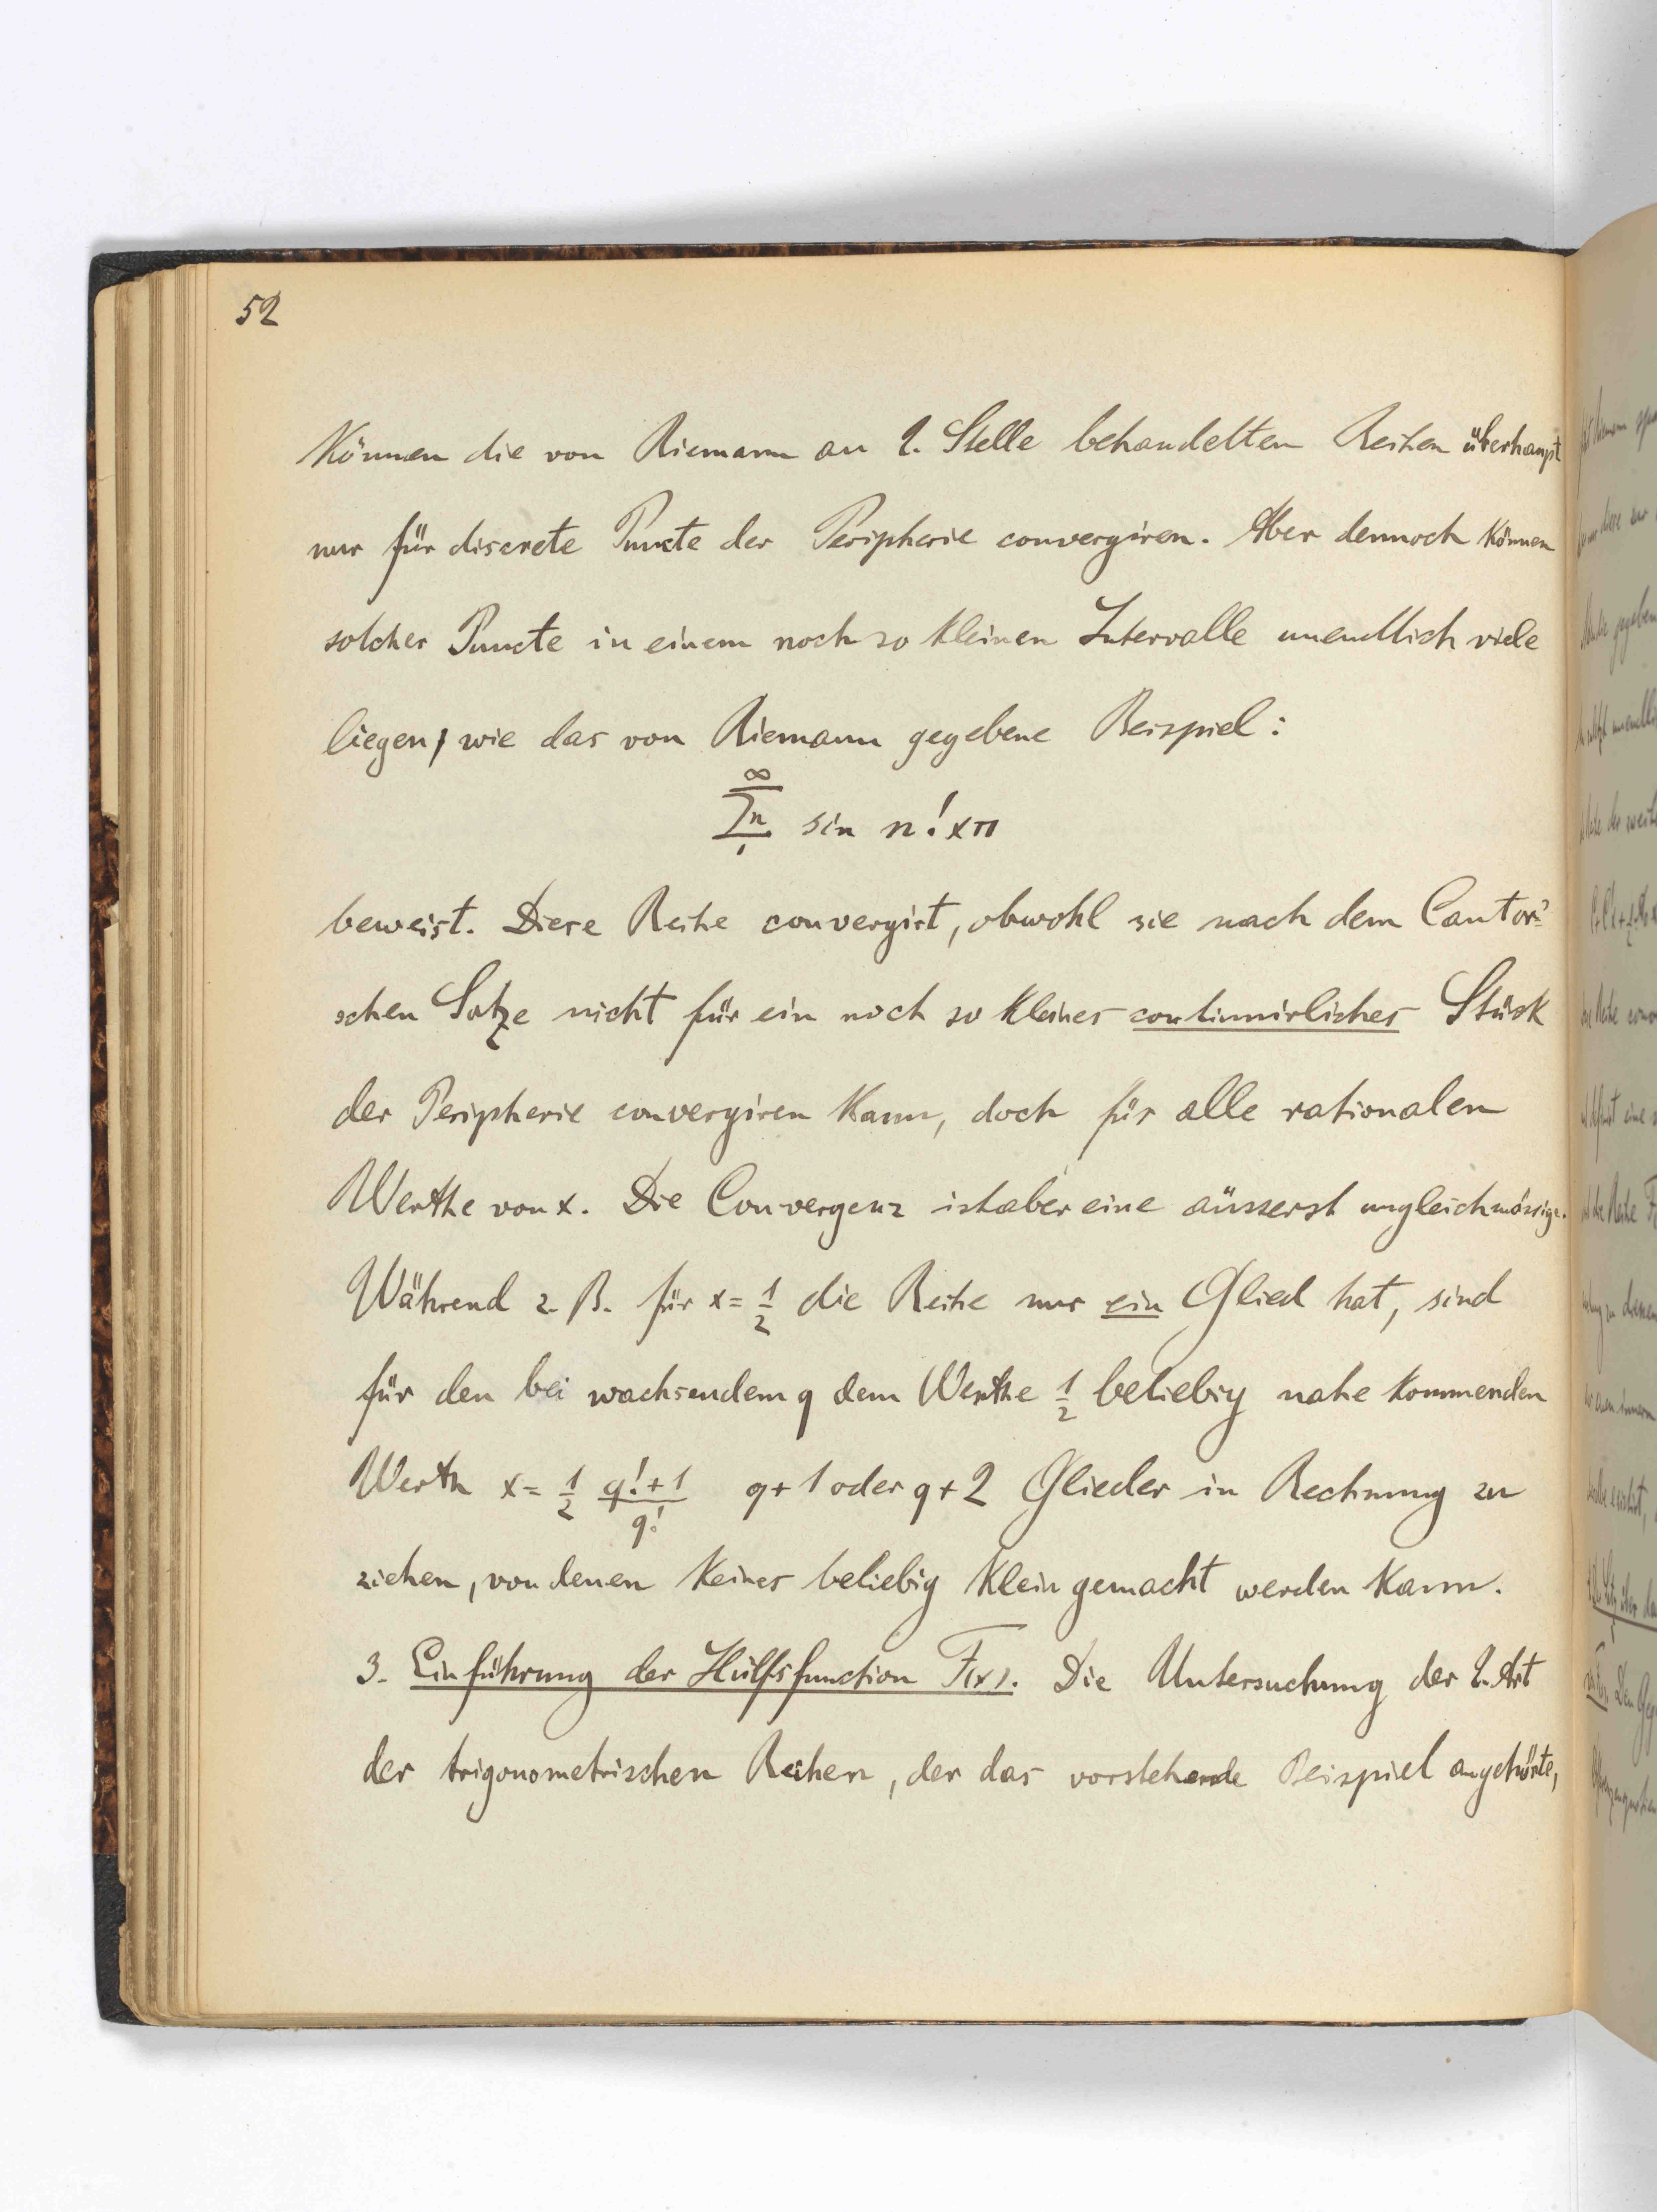 52
können die von Riemann an 2. Stelle behandelten Reihen überhaupt
nur für discrete Puncte der Peripherie convergiren. Aber dennoch können
solcher Puncte in einem noch so kleinen Intervalle unendlich viele
liegen, wie das von Riemann gegebene Beispiel:
∞
Σn sin n! xπ
1
beweist. Diese Reihe convergirt, obwohl sie nach dem Cantor'-
schen Satze nicht für ein noch so kleines continuirliches Stück
der Peripherie convergiren kann, doch für alle rationalen
Werthe von x. Die Convergenz ist aber eine äusserst ungleichmässige.
Während z. B. für x = 1/2 die Reihe nur ein Glied hat, sind
für den bei wachsendem q dem Werthe 1/2 beliebig nahe kommenden
Werth x = 1/2 (q!+1)/q! q+1 oder q+2 Glieder in Rechnung zu
ziehen, von denen keines beliebig klein gemacht werden kann.
3. Einführung der Hülfsfunction F(x). Die Untersuchung der 2. Art
der trigonometrischen Reihen, der das vorstehende Beispiel angehörte,